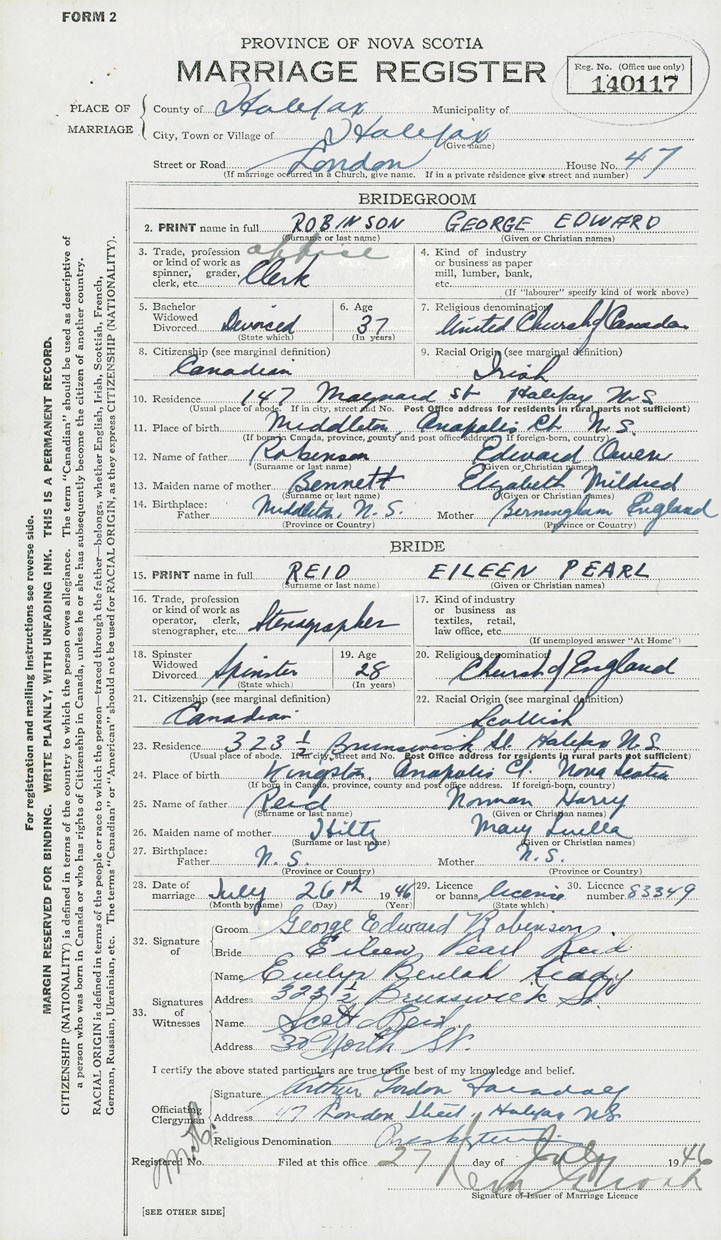 FORM 2
PROVINCE OF NOVA SCOTIA
MARRIAGE REGISTER
Reg. No. (Office use only)
140117
PLACE OF MARRIAGE
County of Halifax Municipality of
City, Town or Village of Halifax
(Give name)
Street or Road London House No. 47
(If marriage occurred in a Church, give name. If in a private residence give street and number)
BRIDEGROOM
2. PRINT name in full ROBINSON GEORGE EDWARD
(Surname or last name) (Given or Christian names)
3. Trade, profession or kind of work as spinner, grader, clerk, etc. office Clerk
4. Kind of industry or business as paper mill, lumber, bank, etc.
(If "labourer" specify kind of work above)
5. Bachelor Widowed Divorced Divorced
(State which)
6. Age 37
(In years)
7. Religious denomination United Church of Canada
8. Citizenship (see marginal definition) Canadian
9. Racial Origin (see marginal definition) Irish
10. Residence 147 Maynard St Halifax N.S
(Usual place of abode. If in city, street and No. Post Office address for residents in rural parts not sufficient)
11. Place of birth Middleton, Anapolis Ct N.S.
(If born in Canada, province, county and post office address. If foreign-born, country)
12. Name of father Robinson Edward Owen
(Surname or last name) (Given or Christian names)
13. Maiden name of mother Bennett Elizabeth Mildred
(Surname or last name) (Given or Christian names)
14. Birthplace: Father Middleton, N.S. Mother Bermingham England
(Province or Country) (Province or Country)
BRIDE
15. PRINT name in full REID EILEEN PEARL
(Surname or last name) (Given or Christian names)
16. Trade, profession or kind of work as operator, clerk, stenographer, etc. Stenographer
17. Kind of industry or business as textiles, retail, law office, etc.
(If unemployed answer "At Home")
18. Spinster Widowed Divorced Spinster
(State which)
19. Age 28
(In years)
20. Religious denomination Church of England
21. Citizenship (see marginal definition) Canadian
22. Racial Origin (see marginal definition) Scottish
23. Residence 323 ½ Brunswick St Halifax N.S
(Usual place of abode. If in city, street and No. Post Office address for residents in rural parts not sufficient)
24. Place of birth Kingston, Anapolis Ct. Nova Scotia
(If born in Canada, province, county and post office address. If foreign-born, country)
25. Name of father Reid Norman Harry
(Surname or last name) (Given or Christian names)
26. Maiden name of mother Hiltz Mary Luella
(Surname or last name) (Given or Christian names)
27. Birthplace: Father N.S. Mother N.S.
(Province or Country) (Province or Country)
28. Date of marriage July 26th 1946
(Month by name) (Day) (Year)
29. Licence or banns license
(State which)
30. Licence number 83349
32. Signature of
Groom George Edward Robinson
Bride Eileen Pearl Reid
33. Signatures of Witnesses
Name Evelyn Beulah
Address 323 ½ Brunswick St.
Name Scott Reid
Address 30 North St.
I certify the above stated particulars are true to the best of my knowledge and belief.
Officiating Clergyman
Signature Arthur Gordon
Address 47 London Street, Halifax N.S
Religious Denomination Presbyterian
Registered No. Filed at this office 27 day of July 1946
Signature of Issuer of Marriage Licence
[SEE OTHER SIDE]
For registration and mailing instructions see reverse side.
MARGIN RESERVED FOR BINDING. WRITE PLAINLY, WITH UNFADING INK. THIS IS A PERMANENT RECORD.
CITIZENSHIP (NATIONALITY) is defined in terms of the country to which the person owes allegiance. The term "Canadian" should be used as descriptive of
a person who was born in Canada or who has rights of Citizenship in Canada, unless he or she has subsequently become the citizen of another country.
RACIAL ORIGIN is defined in terms of the people or race to which the person—traced through the father—belongs, whether English, Irish, Scottish, French,
German, Russian, Ukrainian, etc. The terms "Canadian" or "American" should not be used for RACIAL ORIGIN, as they express CITIZENSHIP (NATIONALITY).